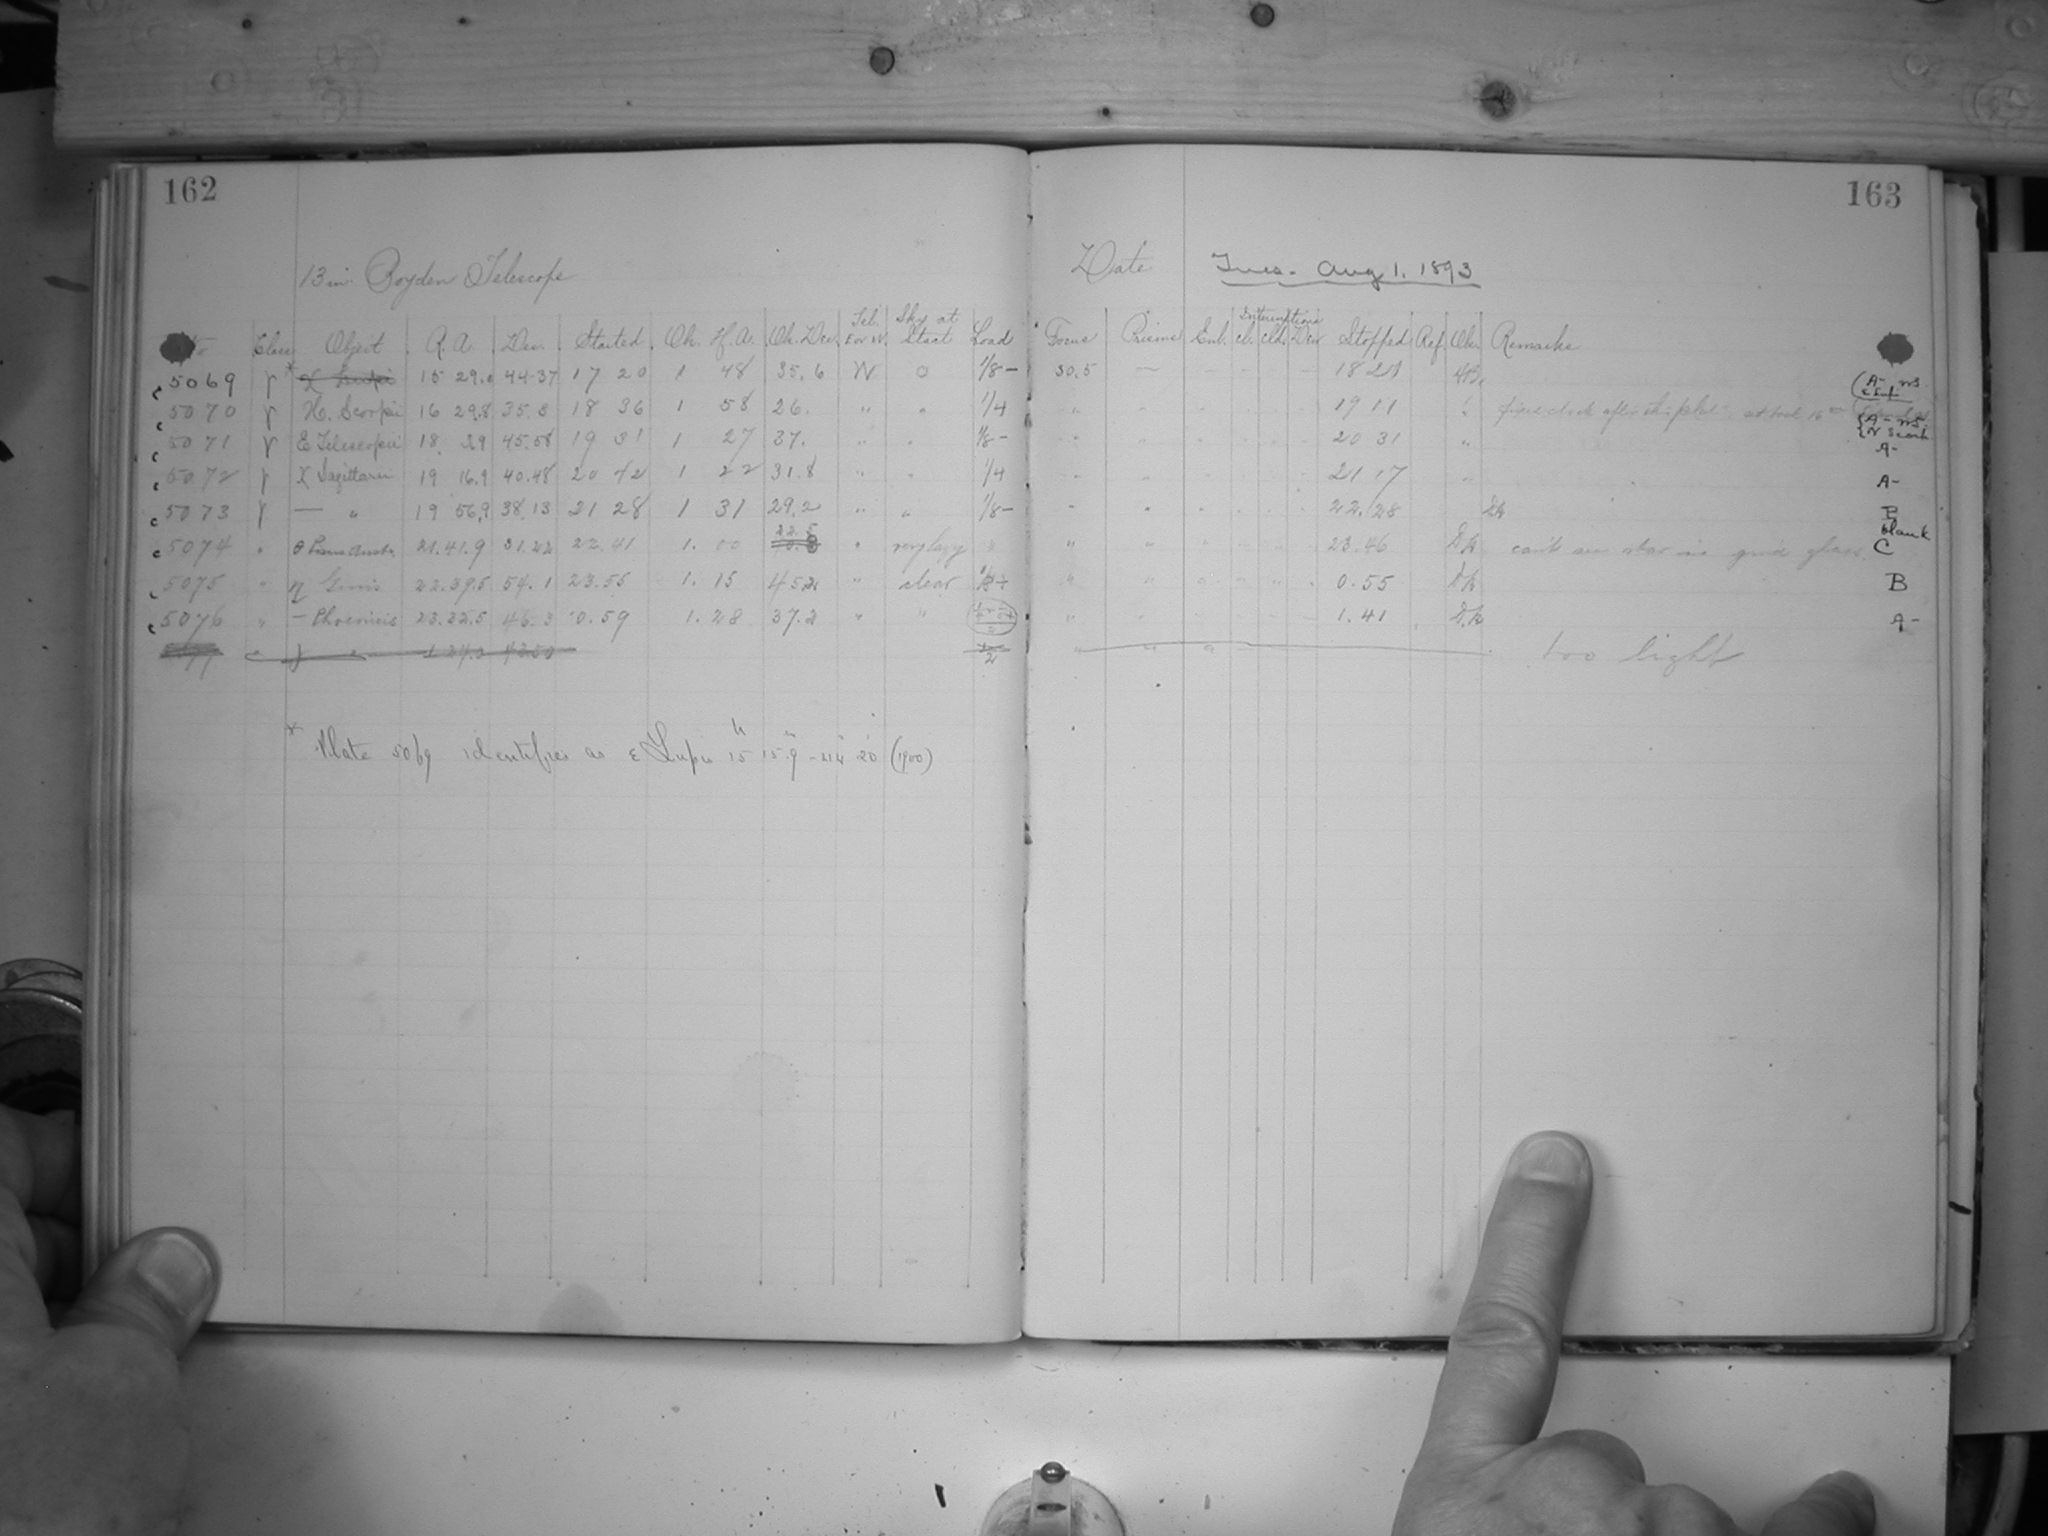 162
163
13 in. Boyden Telescope
Date Tues. Aug 1. 1893
Class Object R.A. Dec. Started Ob. H.A. Ob. Dec. Tel. E or W Sky at Start Load Focus Prisms Enl. Interruptions cl. cld. Dew Stopped Ref. Obs. Remarks
5069 γ * 15 29.0 44.37 17 20 1 48 35.6 W 0 1/8- 30.5 – – – – – 18 21 A-
5070 γ H. Scorpii 16 29.8 35.3 18 36 1 58 26. " " 1/4 " 19 11 fixed clock after this plate
5071 γ E Telescopii 18 45.58 19 31 1 27 37. " " 1/8- 20 31 " A-
5072 γ Sagittarii 19 16.9 40.48 20 42 1 22 31.8 " " 1/4 21 17 A-
5073 γ — " 19 56.9 38.13 21 28 1 31 29.2 " " 1/8- 22.28 DK B
5074 " θ Piscis Austr. 21.41.9 31.22 22.41 1.00 22.5 " very hazy " " 23.46 DK can't see star in guide glass blank C
5075 " η Gruis 22.39.5 54.1 23.55 1.15 45.2 " clear 1/8+ " 0.55 DK B
5076 " – Phoenicis 23.32.5 46.3 0.59 1.28 37.2 " " " 1.41 D.K A-
too light
* Plate 5069 identifies as ε Lupi 15h 15m.9 -44° 20' (1900)